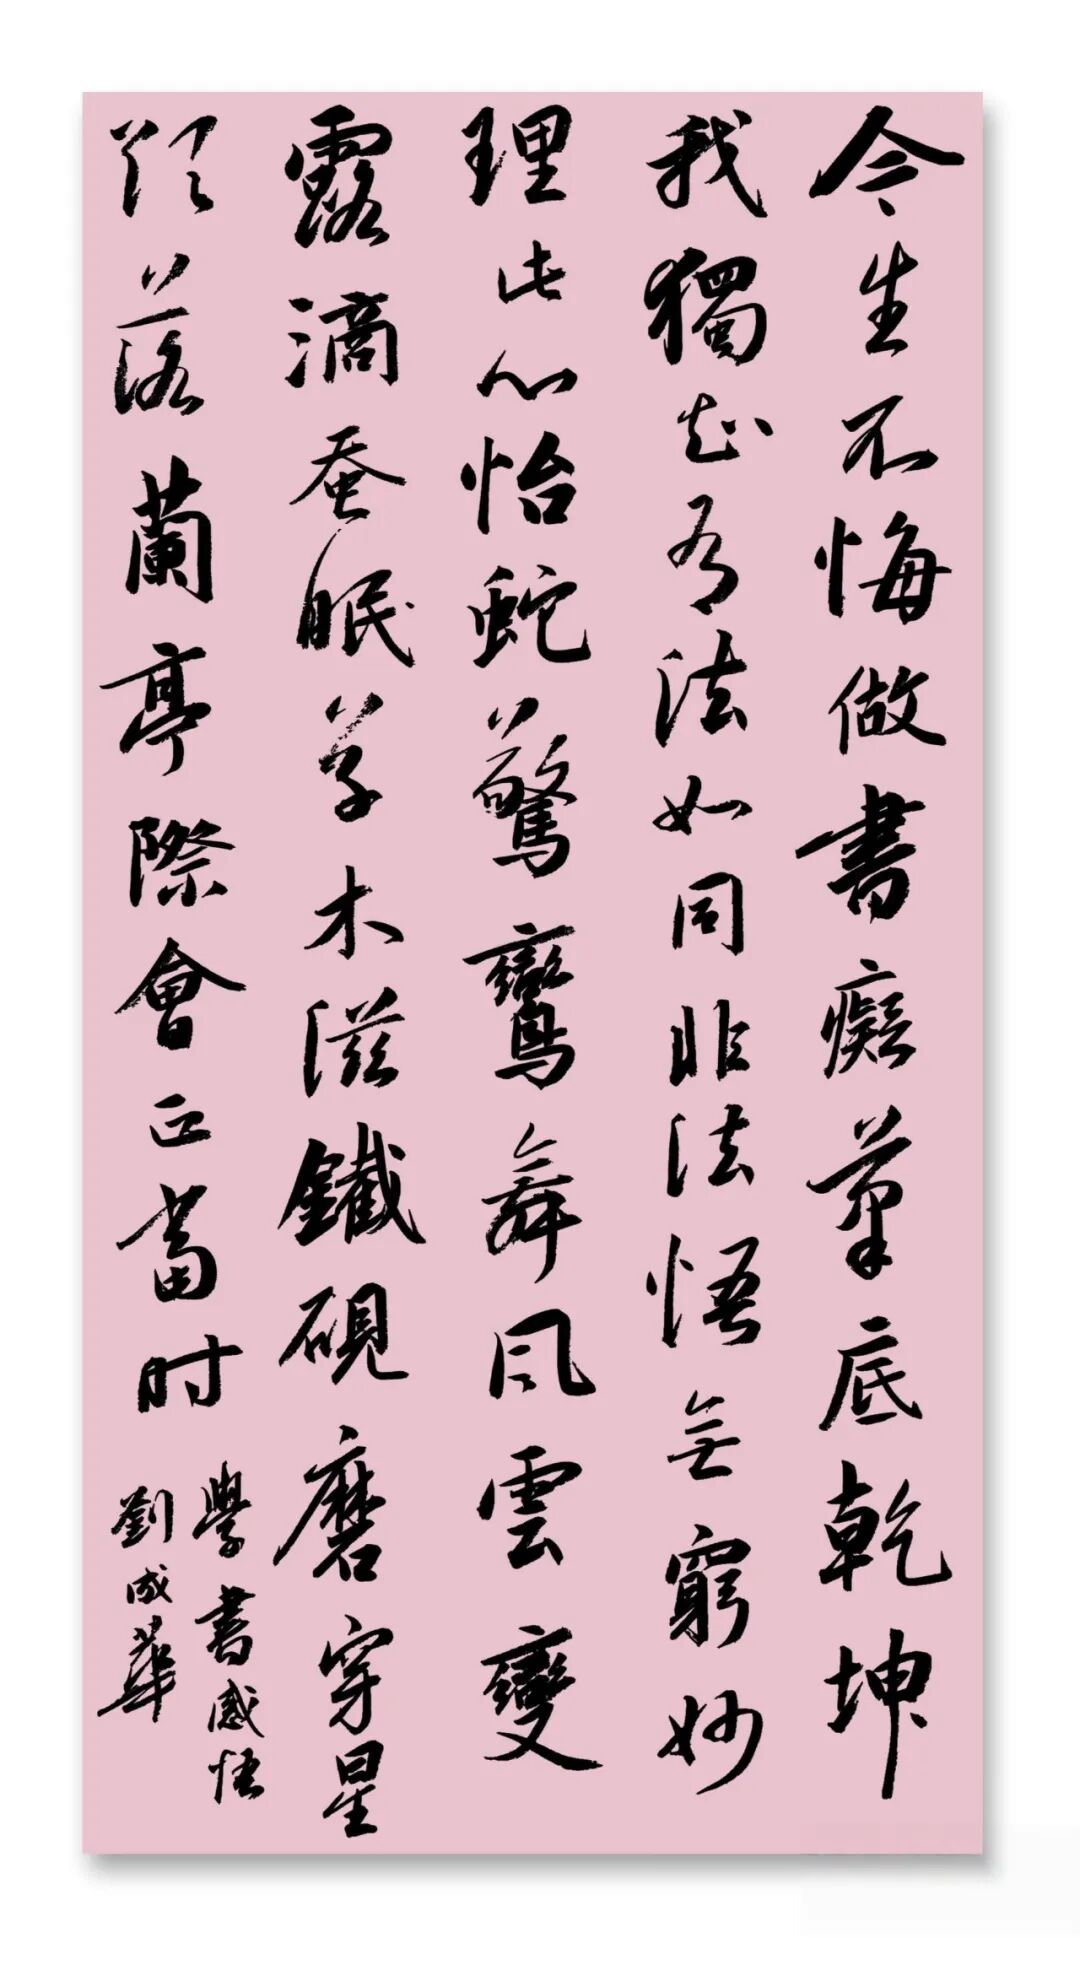 今生不悔做書癡筆底乾坤
我獨知有法如同非法悟無窮妙
理此心怡蛇驚鸞舞風雲變
露滴蚕眠草木滋鐵硯磨穿星
落蘭亭際會正當时
學書感悟
劉成華